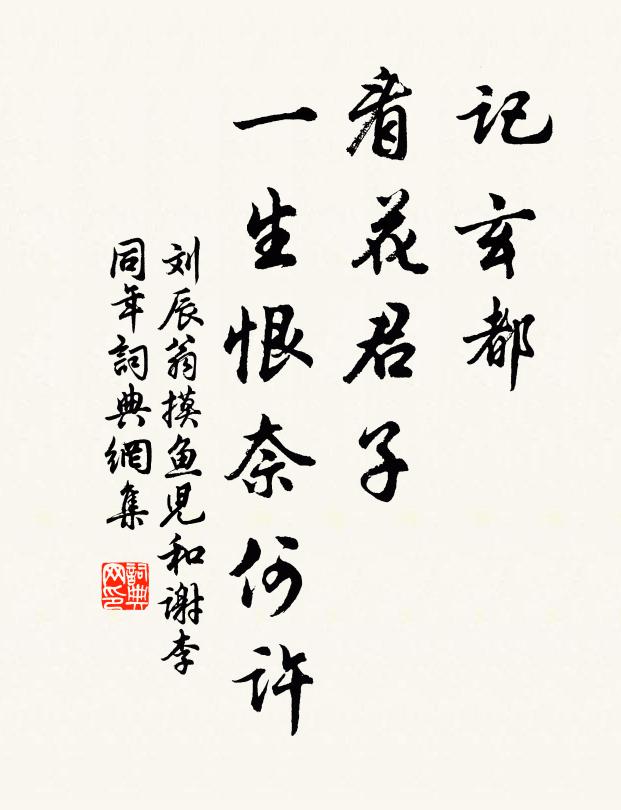 记玄都
看花君子
一生恨奈何许
刘辰翁摸鱼児和谢李
同年詞典網集
詞典网印